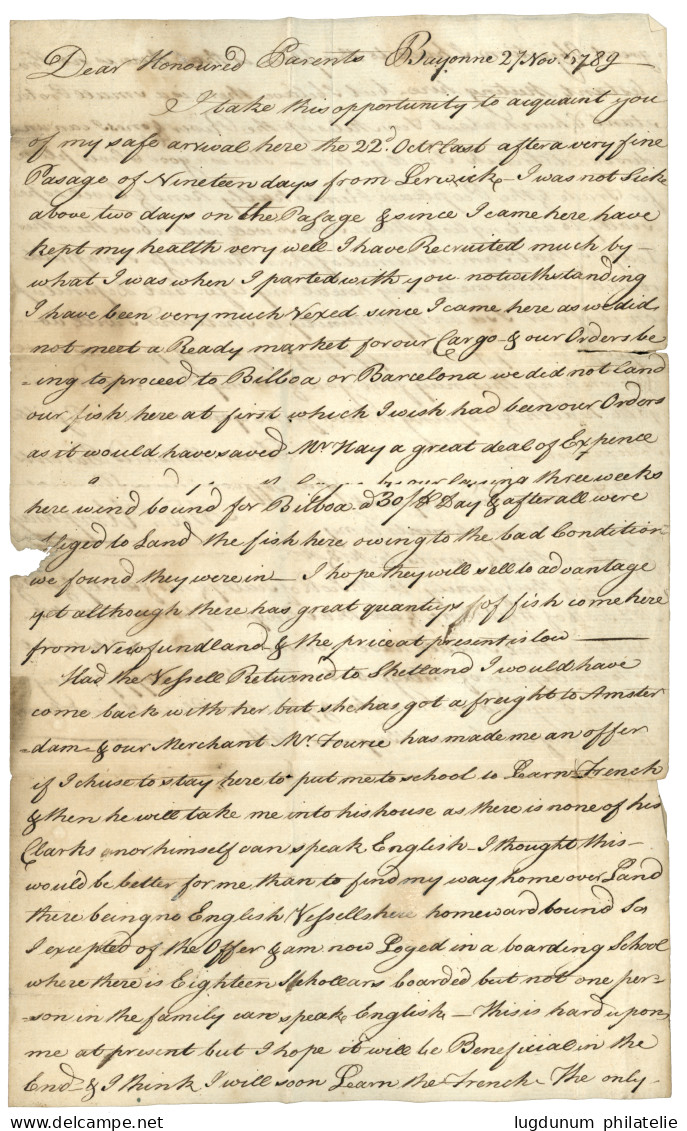 Dear Honoured Parents Bayonne 27 Nov.r 1789
I take this opportunity to acquaint you
of my safe arrival here the 22d. Octr last after a very fine
Pasage of Nineteen days from Lerwick - I was not Sick
above two days on the Pasage & since I came here have
kept my health very well - I have Recruited much by -
what I was when I parted with you notwithstanding
I have been very much Vexed since I came here as we did
not meet a Ready market for our Cargo - & our Orders be
=ing to proceed to Bilboa or Barcelona we did not land
our fish here at first which I wish had been our Orders
as it would have saved Mr Hay a great deal of Expence
three weeks
here wind bound for Bilboa a 30/ Day & after all were
to Land the fish here owing to the bad Condition
we found they were in - I hope they will sell to advantage
yet although there has great of fish come here
from Newfundland - & the price at present is low
Had the Vessell Return'd to Shetland I would have
come back with her but she has got a freight to Amster
=dam - & our Merchant Mr. has made me an offer
if I chuse to stay here to put me to school to Learn French
& then he will take me into his house as there is none of his
Clarks nor himself can speak English - I thought this -
would be better for me than to find my way home over Land
there being no English Vessells here homeward bound So
I excepted of the Offer & am now Loged in a boarding School
where there is Eighteen Schollars boarded but not one per=
=son in the family can speak English - This is hard upon
me at present but I hope it will be Beneficial in the
End - & I think I will soon Learn the French - The only -
lugdunum philatelie